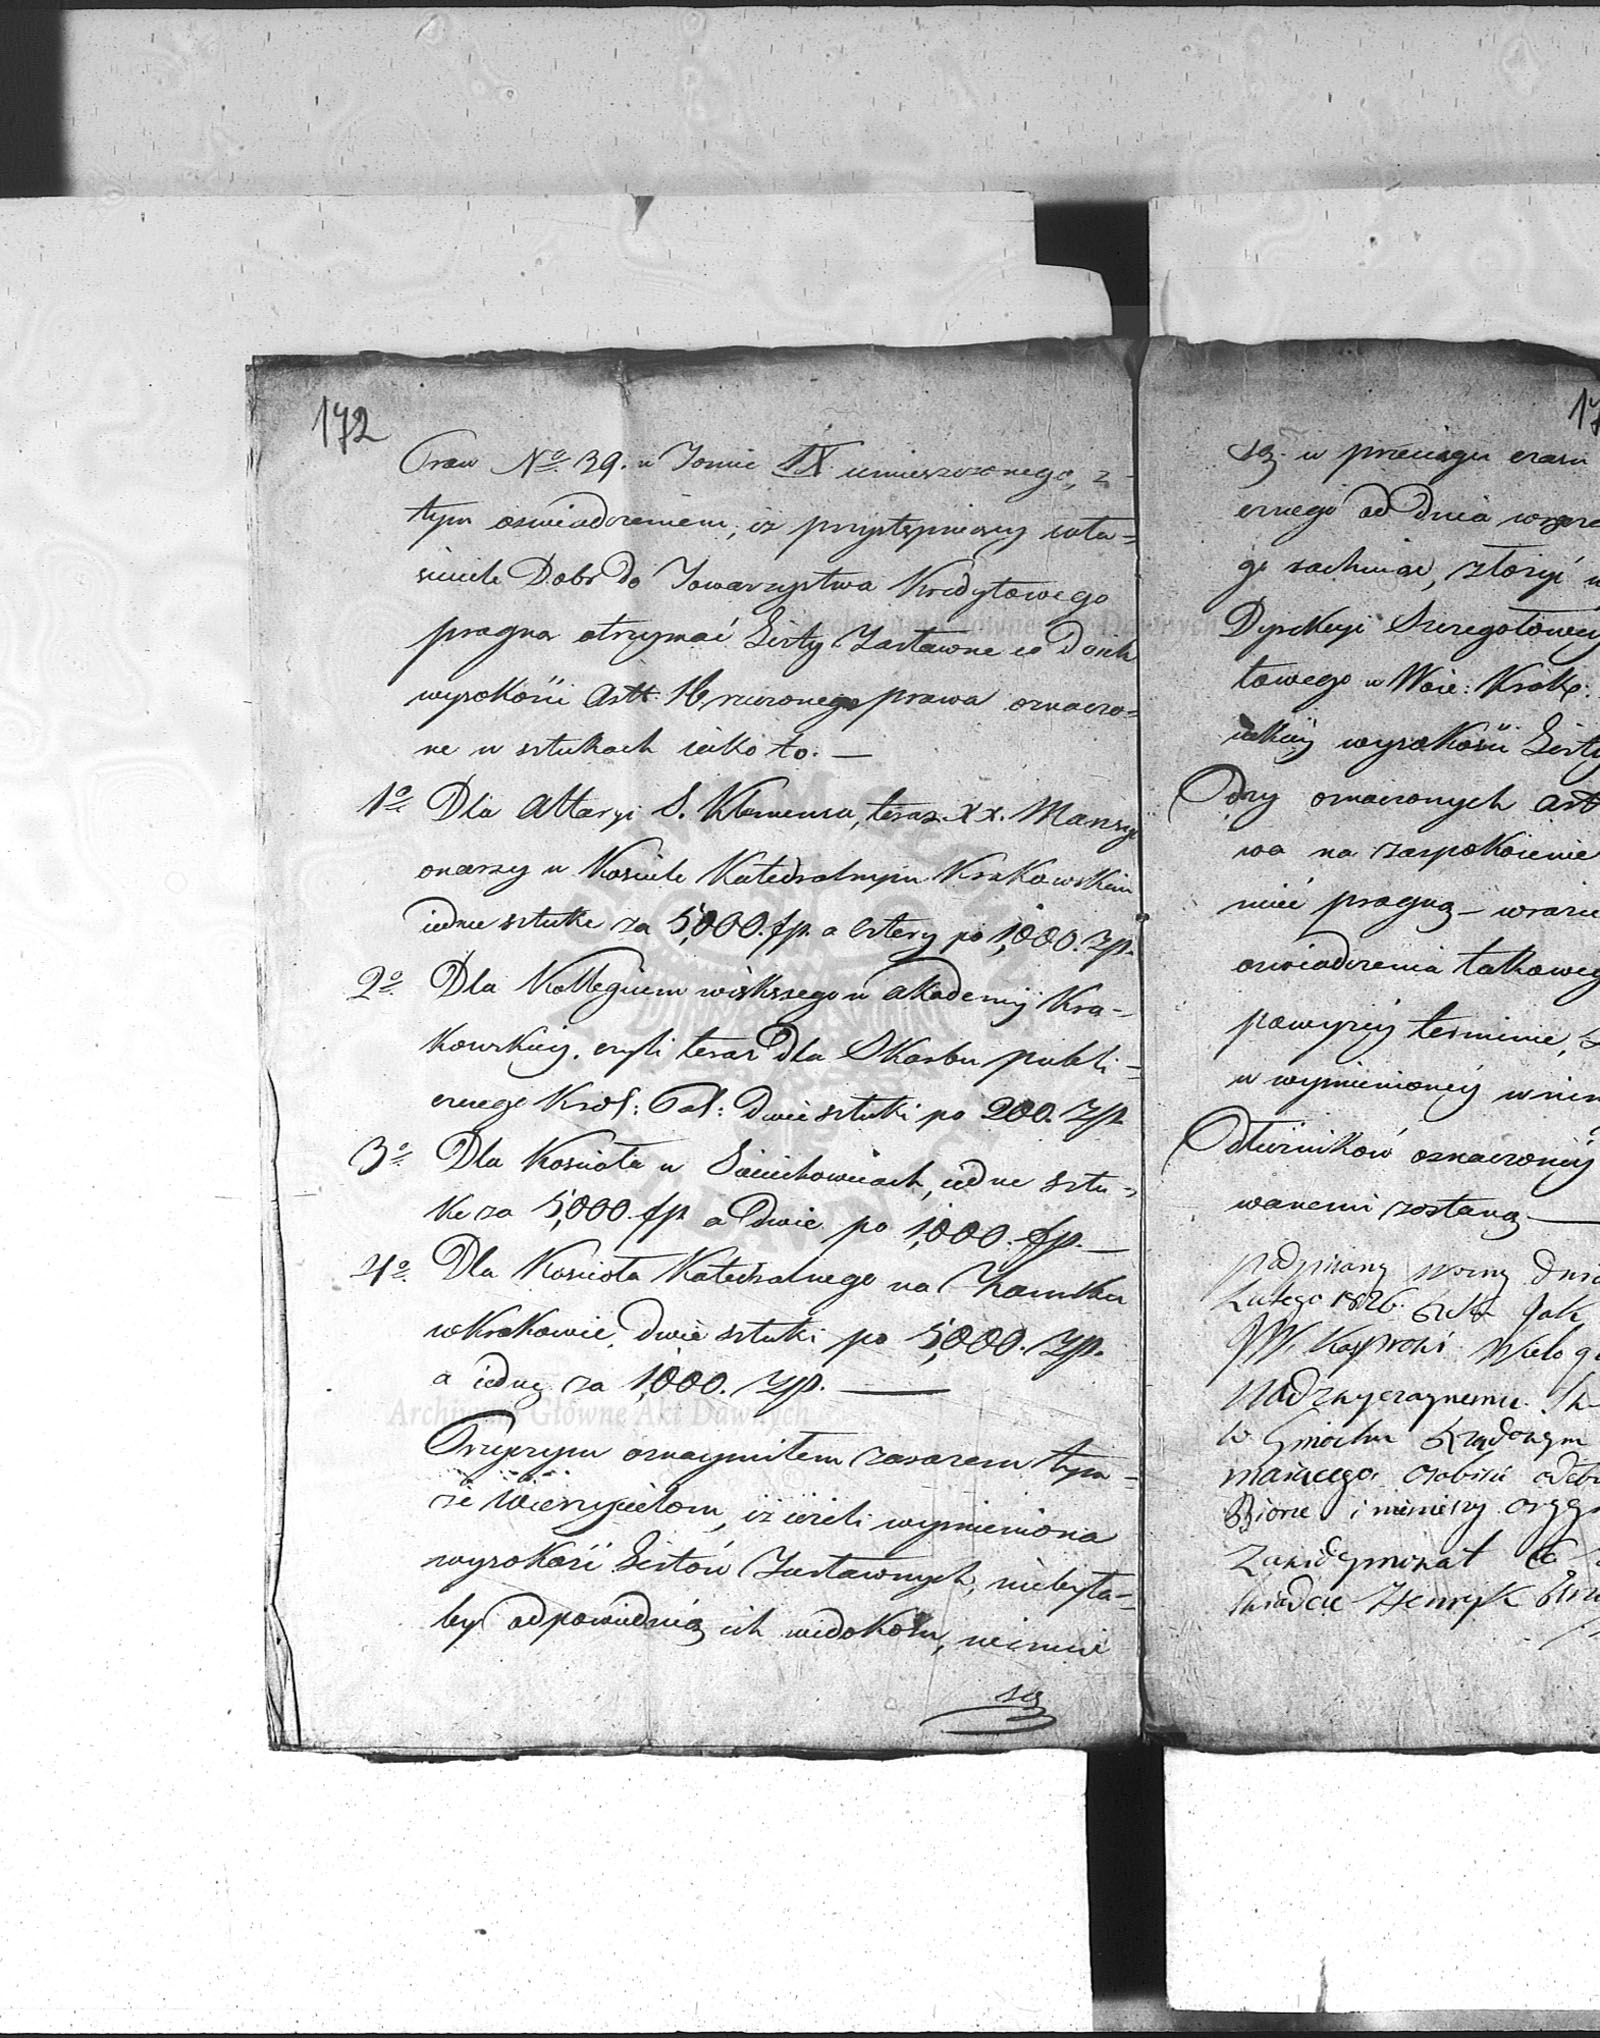 172
Praw No 39. w Tomie IX umieszczonego, z
tym oświadczeniem, iż przystępniący wła=
ściciele Dobr do Towarzystwa Kredytowego
pragną otrzymać Listy Zastawne co do ich
wysokości Artt. 16 rzeczonego prawa oznaczo=
ne w sztukach iako to. —
1o Dla Altaryi S. Klemensa, teraz XX. Mansy=
onarzy w Kościele Katedralnym Krakowskim
iedne sztukę za 5,000. złp. a cztery po 1,000. Złp.
2o Dla Kollegium większego w Akademij Kra=
kowskiey. czyli teraz dla Skarbu publi=
cznego Król: Pol: dwie sztuki po 200. Złp.
3o Dla Kościoła w Sieciechowicach, iedne sztu=
kę za 5,000. złp. a dwie po 1,000. złp. —
4o Dla Kościoła Katedralnego na Zamku
w Krakowie, dwie sztuki po 5,000. Złp.
a iedną za 1,000. Złp. —
Przyczym oznaymiłem zarazem tym=
że Wierzycielom, iż ieżeli wymieniona
wysokość Listów Zastawnych, niebyła=
by odpowiednią ich widokom, winni
są
17
są w przeciągu czasu
cznego od dnia
go rachuiąc, złożyć w
Dyrekcyi Szczegółowey
towego w Woie: Krak:
iakiéy wysokości Listy
oznaczonych Art
wa na zaspokoienie
mieć pragną — wrazie
oświadczenia takoweg
powyzéy terminie,
w wymienionéy w nin
Odcinków oznaczonéy
wanemi zostaną —
Podpisany Woźny dnia
Lutego 1826.
JW. Kasprowi Wielog
Nadzwyczaynemu
w Gmachu Rządowym
maiącego, osobiście odebr
Biorze i ninieyszy orygi
Zaaidymował Co
świadcze Henryk
Archiwum Główne Akt Dawnych